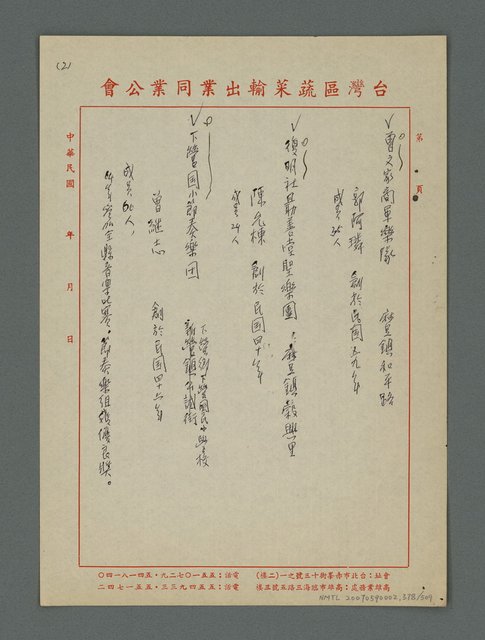 (2)
台灣區蔬菜輸出業同業公會
第 頁
曾文家商軍樂隊 麻豆鎮和平路
郭阿璘 創於民國五九年
成員35人
復明社昌善堂聖樂團 麻豆鎮穀興里
陳允棟 創於民國四十八年
成員24人
下營国小節奏樂团 下營鄉下營國民小學校
曾継志 創於民国四十六年
成員60人,
參加全縣音樂比賽。節奏樂組獲優良獎。
中華民國 年 月 日
會址:台北市赤峯街十三號之一(二樓) 電話:五五一〇七二九・五五四一八一四〇
高雄業務處:高雄市臨海三路五號三樓 電話:五五四九三三・五五一七四二
NMTL 20070590002,378/504